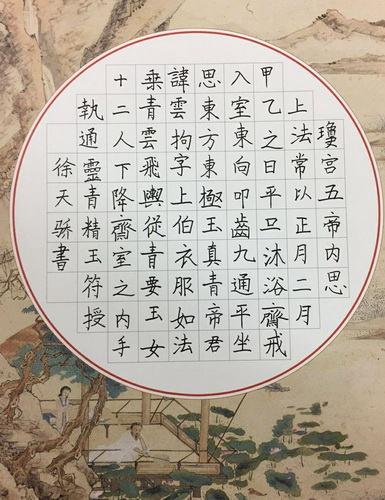 瓊宮五帝内思
上法常以正月二月
甲乙之日平旦沐浴齋戒
入室東向叩齒九通平坐
思東方東極玉真青帝君
諱雲拘字上伯衣服如法
乘青雲飛輿從青要玉女
十二人下降齋室之内手
執通靈青精玉符授
徐天書